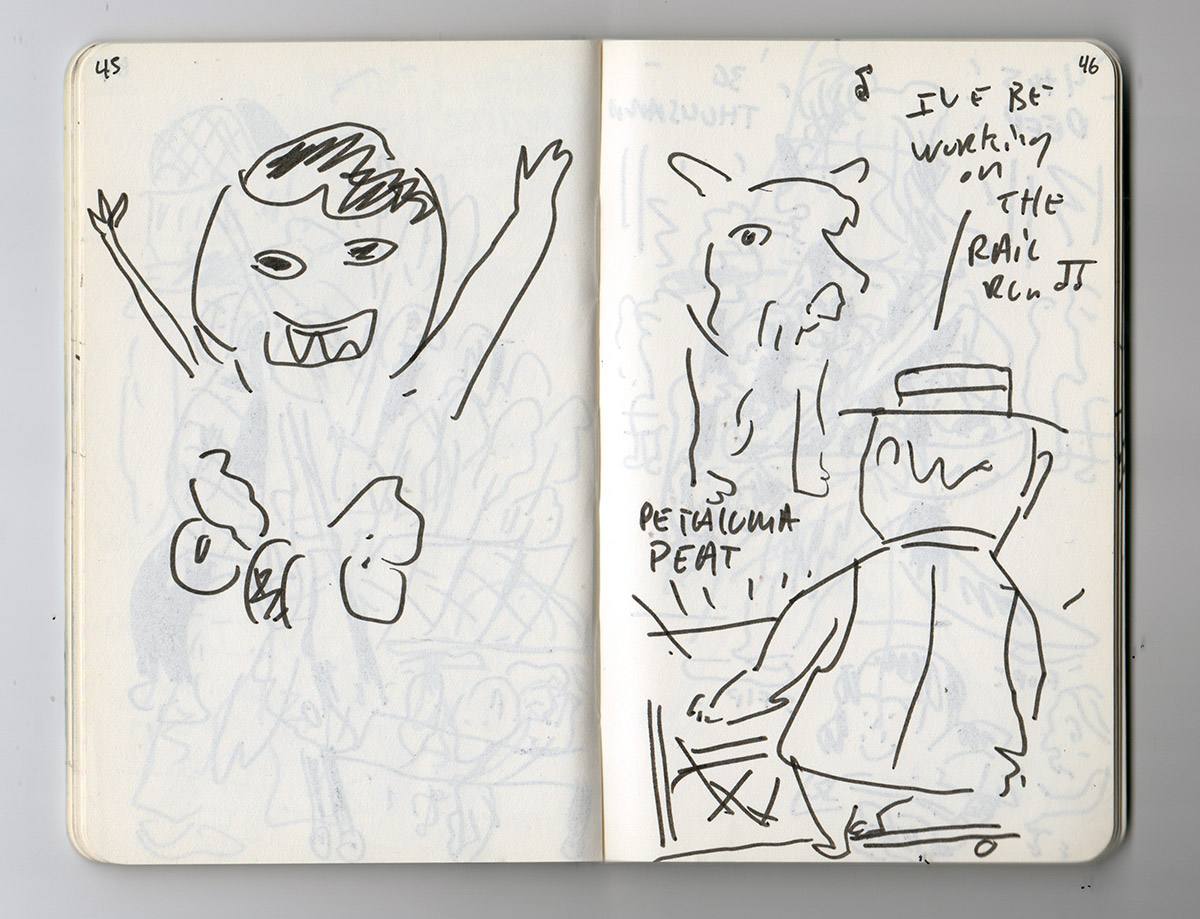 45
46
IVE BE
working
on
THE
RAIL
RUN
PETALUMA
PEAT